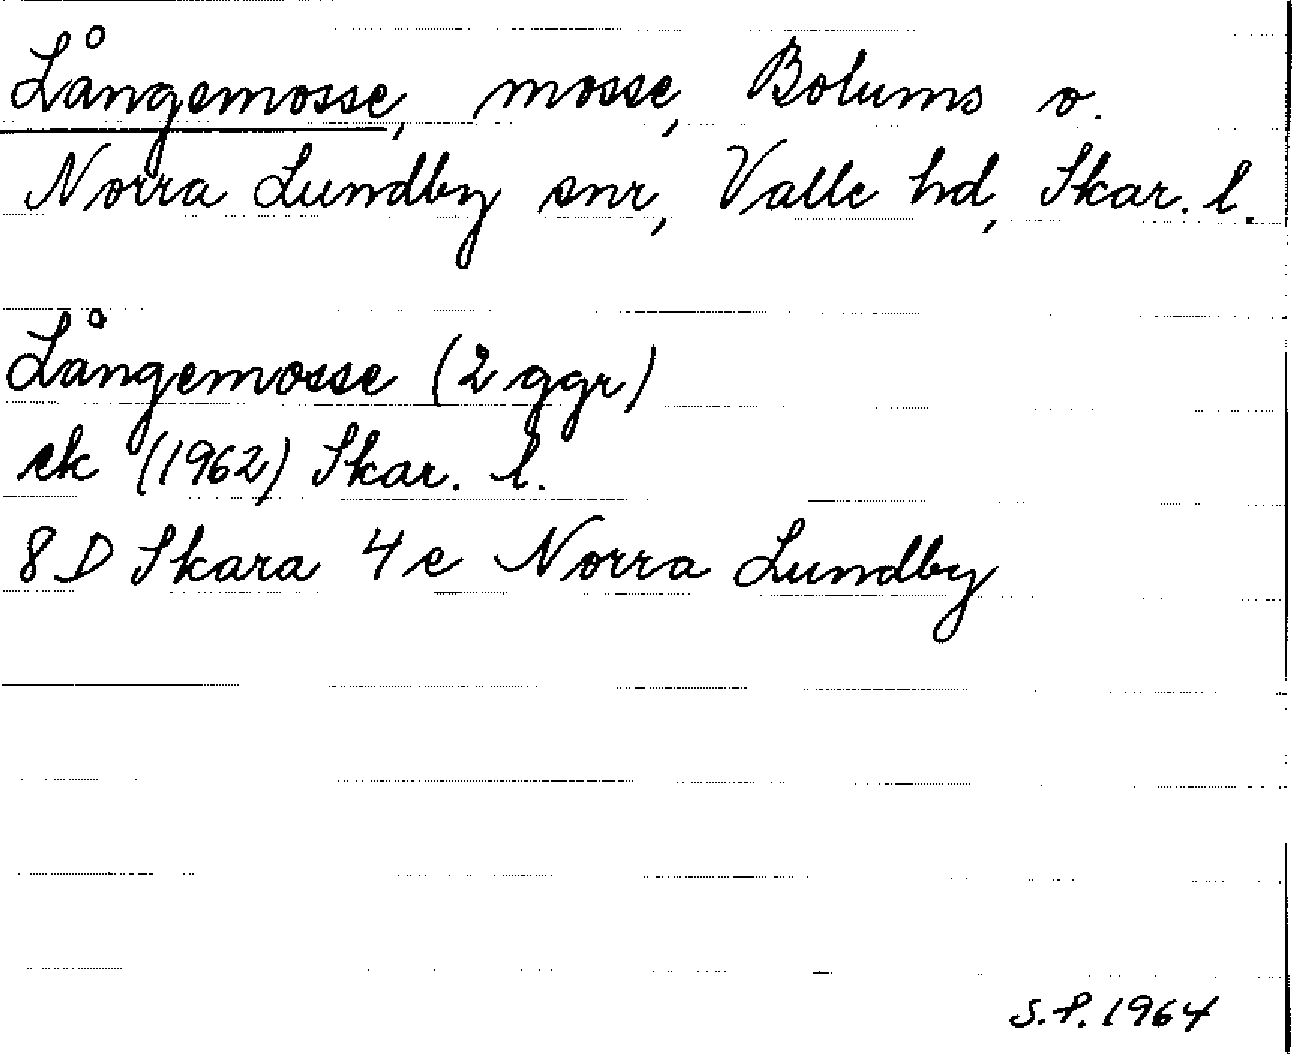 Långemosse, mosse, Bolums o.
Norra Lundby snr, Valle hd, Skar. l.
Långemosse (2 ggr)
ek (1962) Skar. l.
8 D Skara 4 e Norra Lundby
S.P. 1964